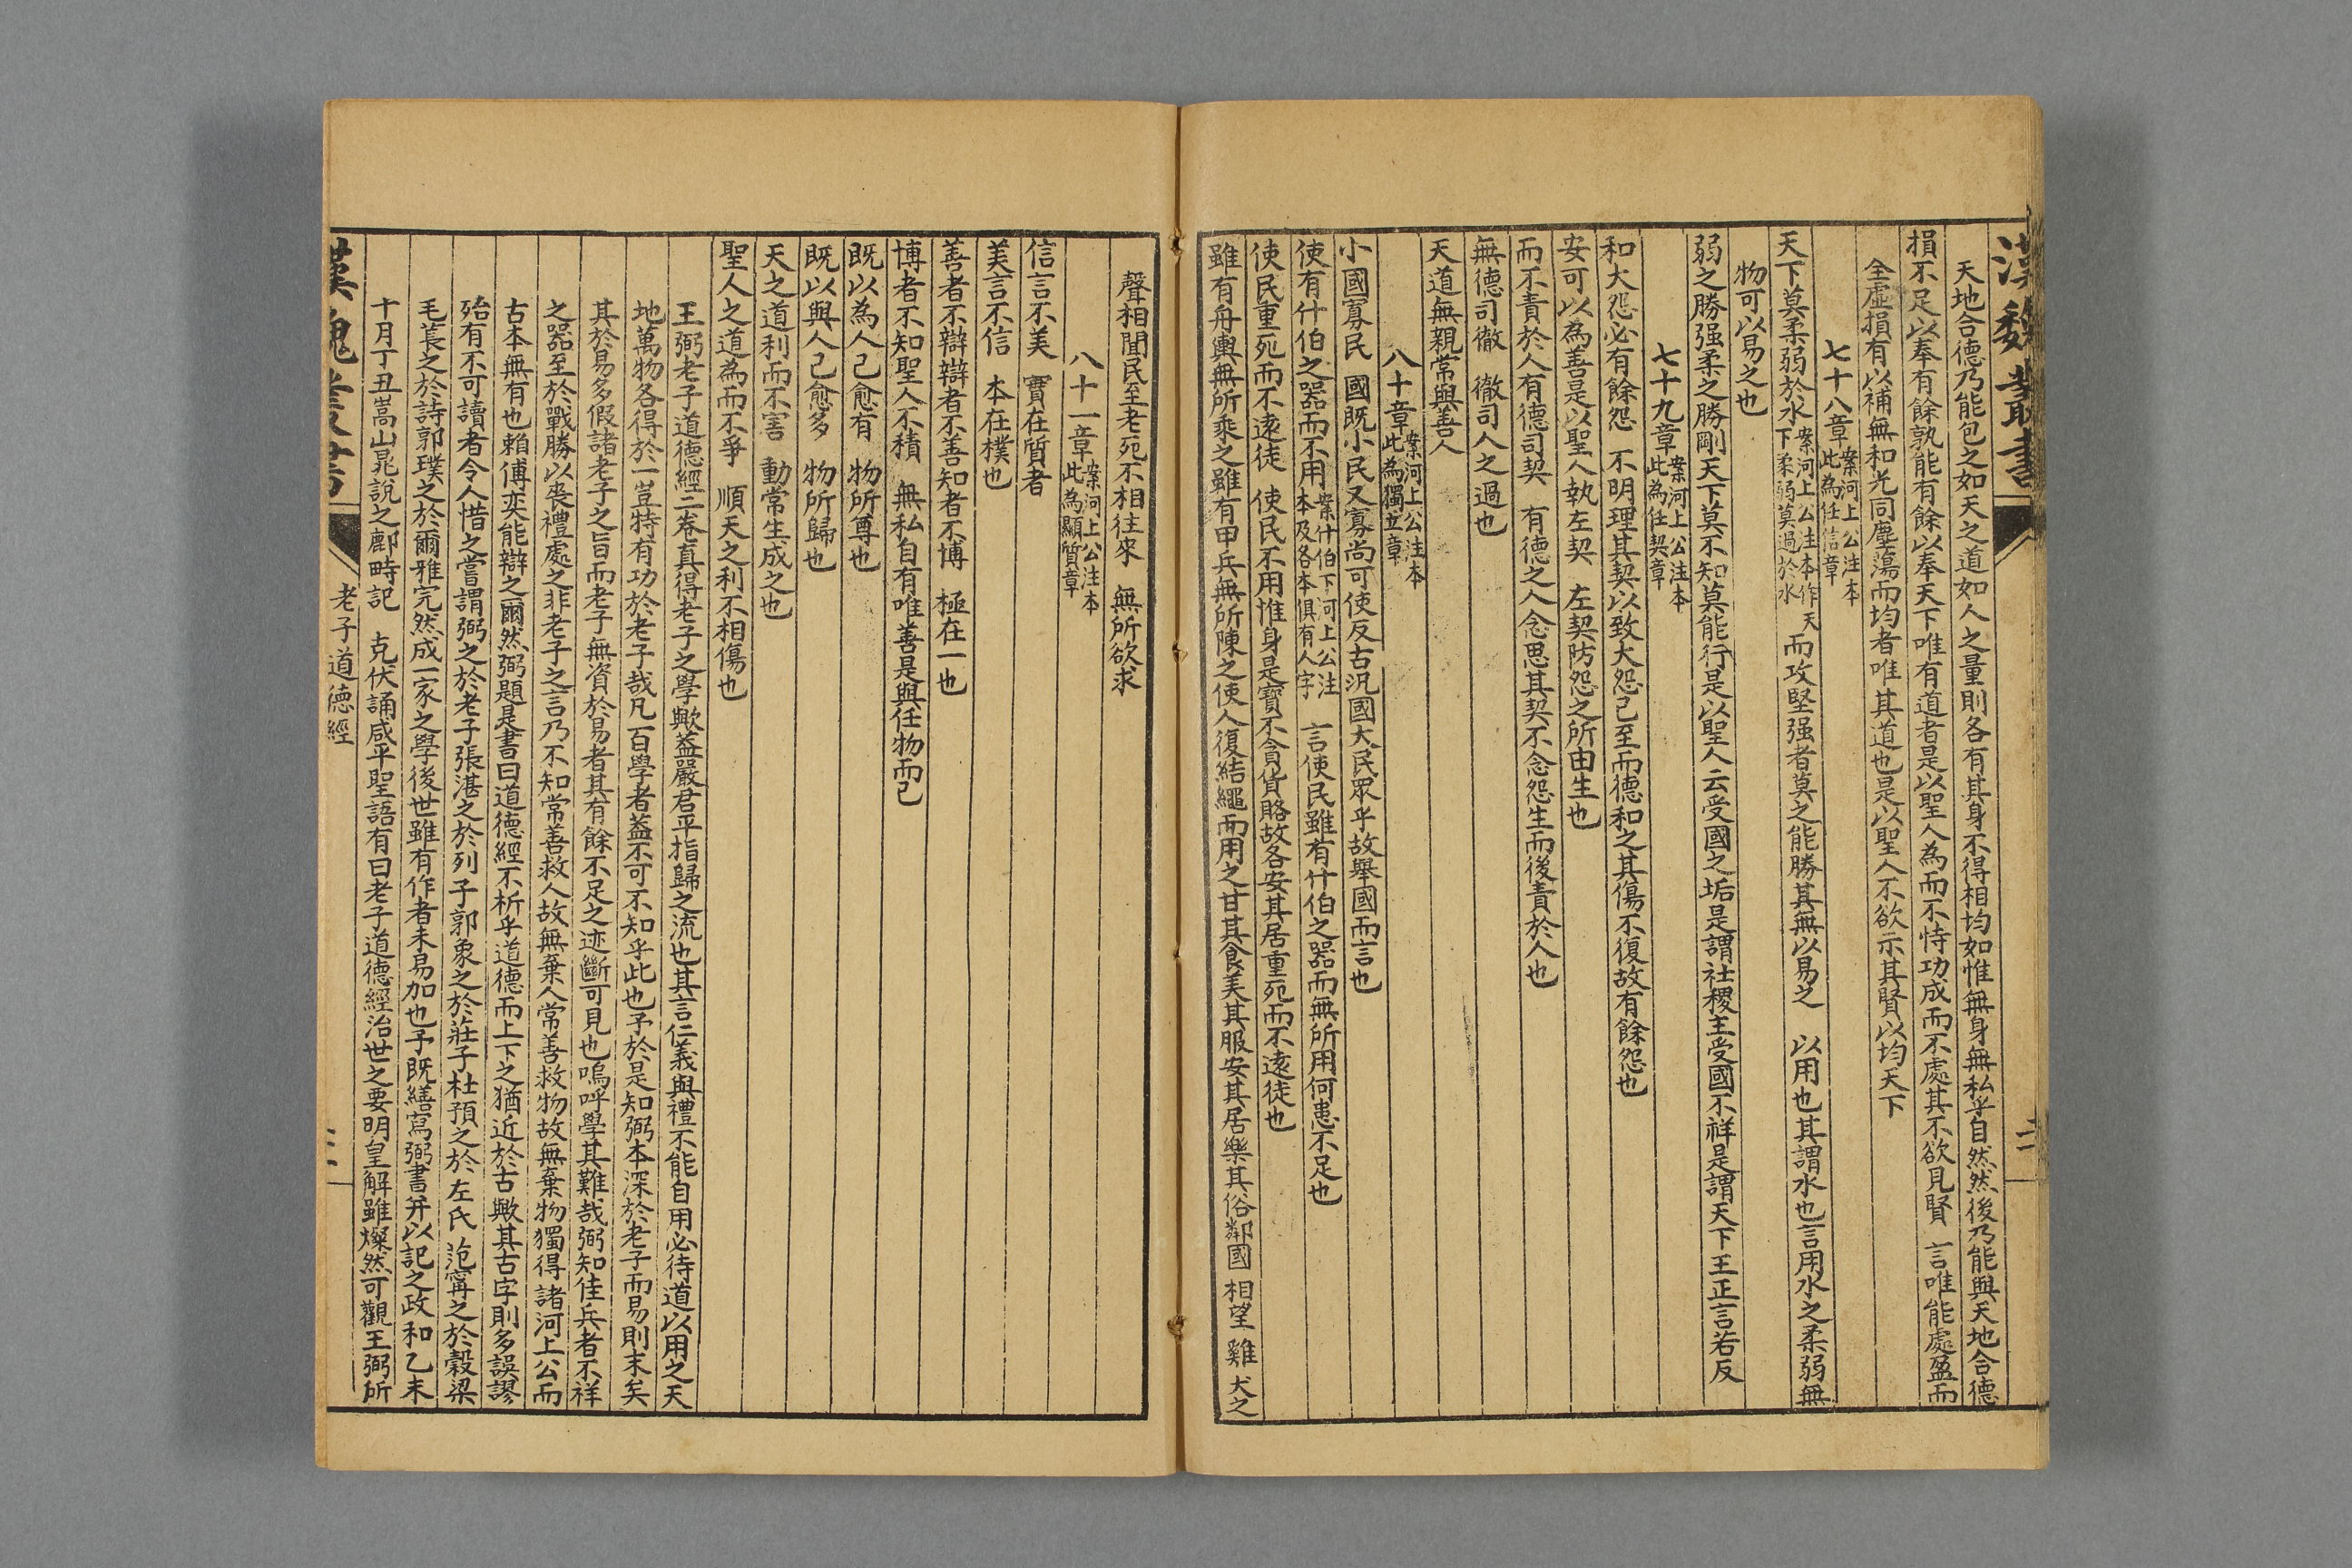 漢魏叢書
天地合德乃能包之如天之道如人之量則各有其身不得相均如惟無身無私乎自然然後乃能與天地合德
損不足以奉有餘孰能有餘以奉天下唯有道者是以聖人為而不恃功成而不處其不欲見賢 言唯能處盈而
全虛損有以補無和光同塵蕩而均者唯其道也是以聖人不欲示其賢以均天下
七十八章案河上公注本此為任信章
天下莫柔弱於水案河上公注本作天下柔弱莫過於水而攻堅强者莫之能勝其無以易之 以用也其謂水也言用水之柔弱無
物可以易之也
弱之勝强柔之勝剛天下莫不知莫能行是以聖人云受國之垢是謂社稷主受國不祥是謂天下王正言若反
七十九章案河上公注本此為任契章
和大怨必有餘怨 不明理其契以致大怨已至而德和之其傷不復故有餘怨也
安可以為善是以聖人執左契 左契防怨之所由生也
而不責於人有德司契 有德之人念思其契不念怨生而後責於人也
無德司徹 徹司人之過也
天道無親常與善人
八十章案河上公注本此為獨立章
小國寡民 國既小民又寡尚可使反古況國大民眾乎故舉國而言也
使有什伯之器而不用案什伯下河上公注本及各本俱有人字 言使民雖有什伯之器而無所用何患不足也
使民重死而不遠徙 使民不用惟身是寶不貪貨賂故各安其居重死而不遠徙也
雖有舟輿無所乘之雖有甲兵無所陳之使人復結繩而用之甘其食美其服安其居樂其俗鄰國相望雞犬之
聲相聞民至老死不相往來 無所欲求
八十一章案河上公注本此為顯質章
信言不美 實在質者
美言不信 本在樸也
善者不辯辯者不善知者不博 極在一也
博者不知聖人不積 無私自有唯善是與任物而已
既以為人己愈有 物所尊也
既以與人己愈多 物所歸也
天之道利而不害 動常生成之也
聖人之道為而不爭 順天之利不相傷也
王弼老子道德經二卷真得老子之學歟蓋嚴君平指歸之流也其言仁義與禮不能自用必待道以用之天
地萬物各得於一豈特有功於老子哉凡百學者蓋不可不知乎此也予於是知弼本深於老子而易則末矣
其於易多假諸老子之旨而老子無資於易者其有餘不足之迹斷可見也嗚呼學其難哉弼知佳兵者不祥
之器至於戰勝以喪禮處之非老子之言乃不知常善救人故無棄人常善救物故無棄物獨得諸河上公而
古本無有也賴傅奕能辯之爾然弼題是書曰道德經不析乎道德而上下之猶近於古歟其古字則多誤謬
殆有不可讀者令人惜之嘗謂弼之於老子張湛之於列子郭象之於莊子杜預之於左氏范寗之於穀梁
毛萇之於詩郭璞之於爾雅完然成一家之學後世雖有作者未易加也予既繕寫弼書并以記之政和乙未
十月丁丑嵩山晁說之鄜畤記 克伏誦咸平聖語有曰老子道德經治世之要明皇解雖燦然可觀王弼所
漢魏叢書
老子道德經